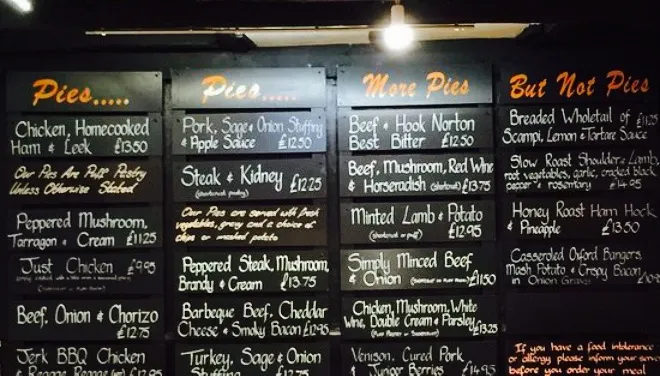 Pies.....
Chicken, Homecooked
Ham & Leek £13.50
Our Pies Are Puff Pastry
Unless Otherwise Stated
Peppered Mushroom,
Tarragon & Cream £11.25
Just Chicken £9.95
Beef, Onion & Chorizo
£12.75
Jerk BBQ Chicken
& Reggae Reggae £12.95
Pies.....
Pork, Sage & Onion Stuffing
& Apple Sauce £12.50
Steak & Kidney £12.25
(shortcrust pastry)
Our Pies are served with fresh
vegetables, gravy and a choice of
chips or mashed potato
Peppered Steak, Mushroom,
Brandy & Cream £13.75
Barbeque Beef, Cheddar
Cheese & Smoky Bacon £12.95
Turkey, Sage & Onion
Stuffing £12.75
More Pies
Beef & Hook Norton
Best Bitter £12.50
Beef, Mushroom, Red Wine
& Horseradish (shortcrust) £13.75
Minted Lamb & Potato
(shortcrust or puff) £12.95
Simply Minced Beef
& Onion (Shortcrust or Puff Pastry) £11.50
Chicken, Mushroom, White
Wine, Double Cream & Parsley
(Puff Pastry or Shortcrust) £13.25
Venison, Cured Pork
& Juniper Berries £14.95
But Not Pies
Breaded Wholetail of £11.25
Scampi, Lemon & Tartare Sauce
Slow Roast Shoulder Lamb,
root vegetables, garlic, cracked black
pepper & rosemary £14.95
Honey Roast Ham Hock
& Pineapple £13.50
Casseroled Oxford Bangers,
Mash Potato & Crispy Bacon
in Onion Gravy
If you have a food intolerance
or allergy please inform your server
before you order your meal